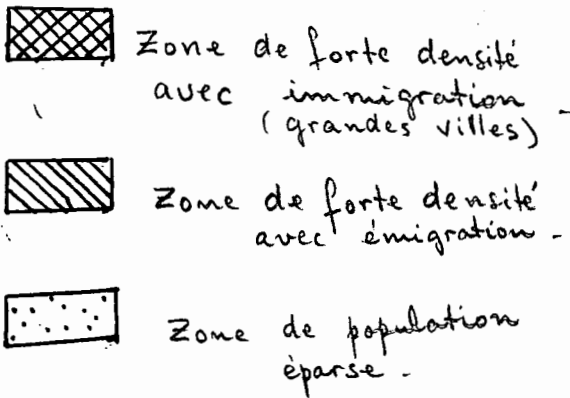 Zone de forte densité
avec immigration
(grandes villes) -
Zone de forte densité
avec émigration -
Zone de population
éparse -